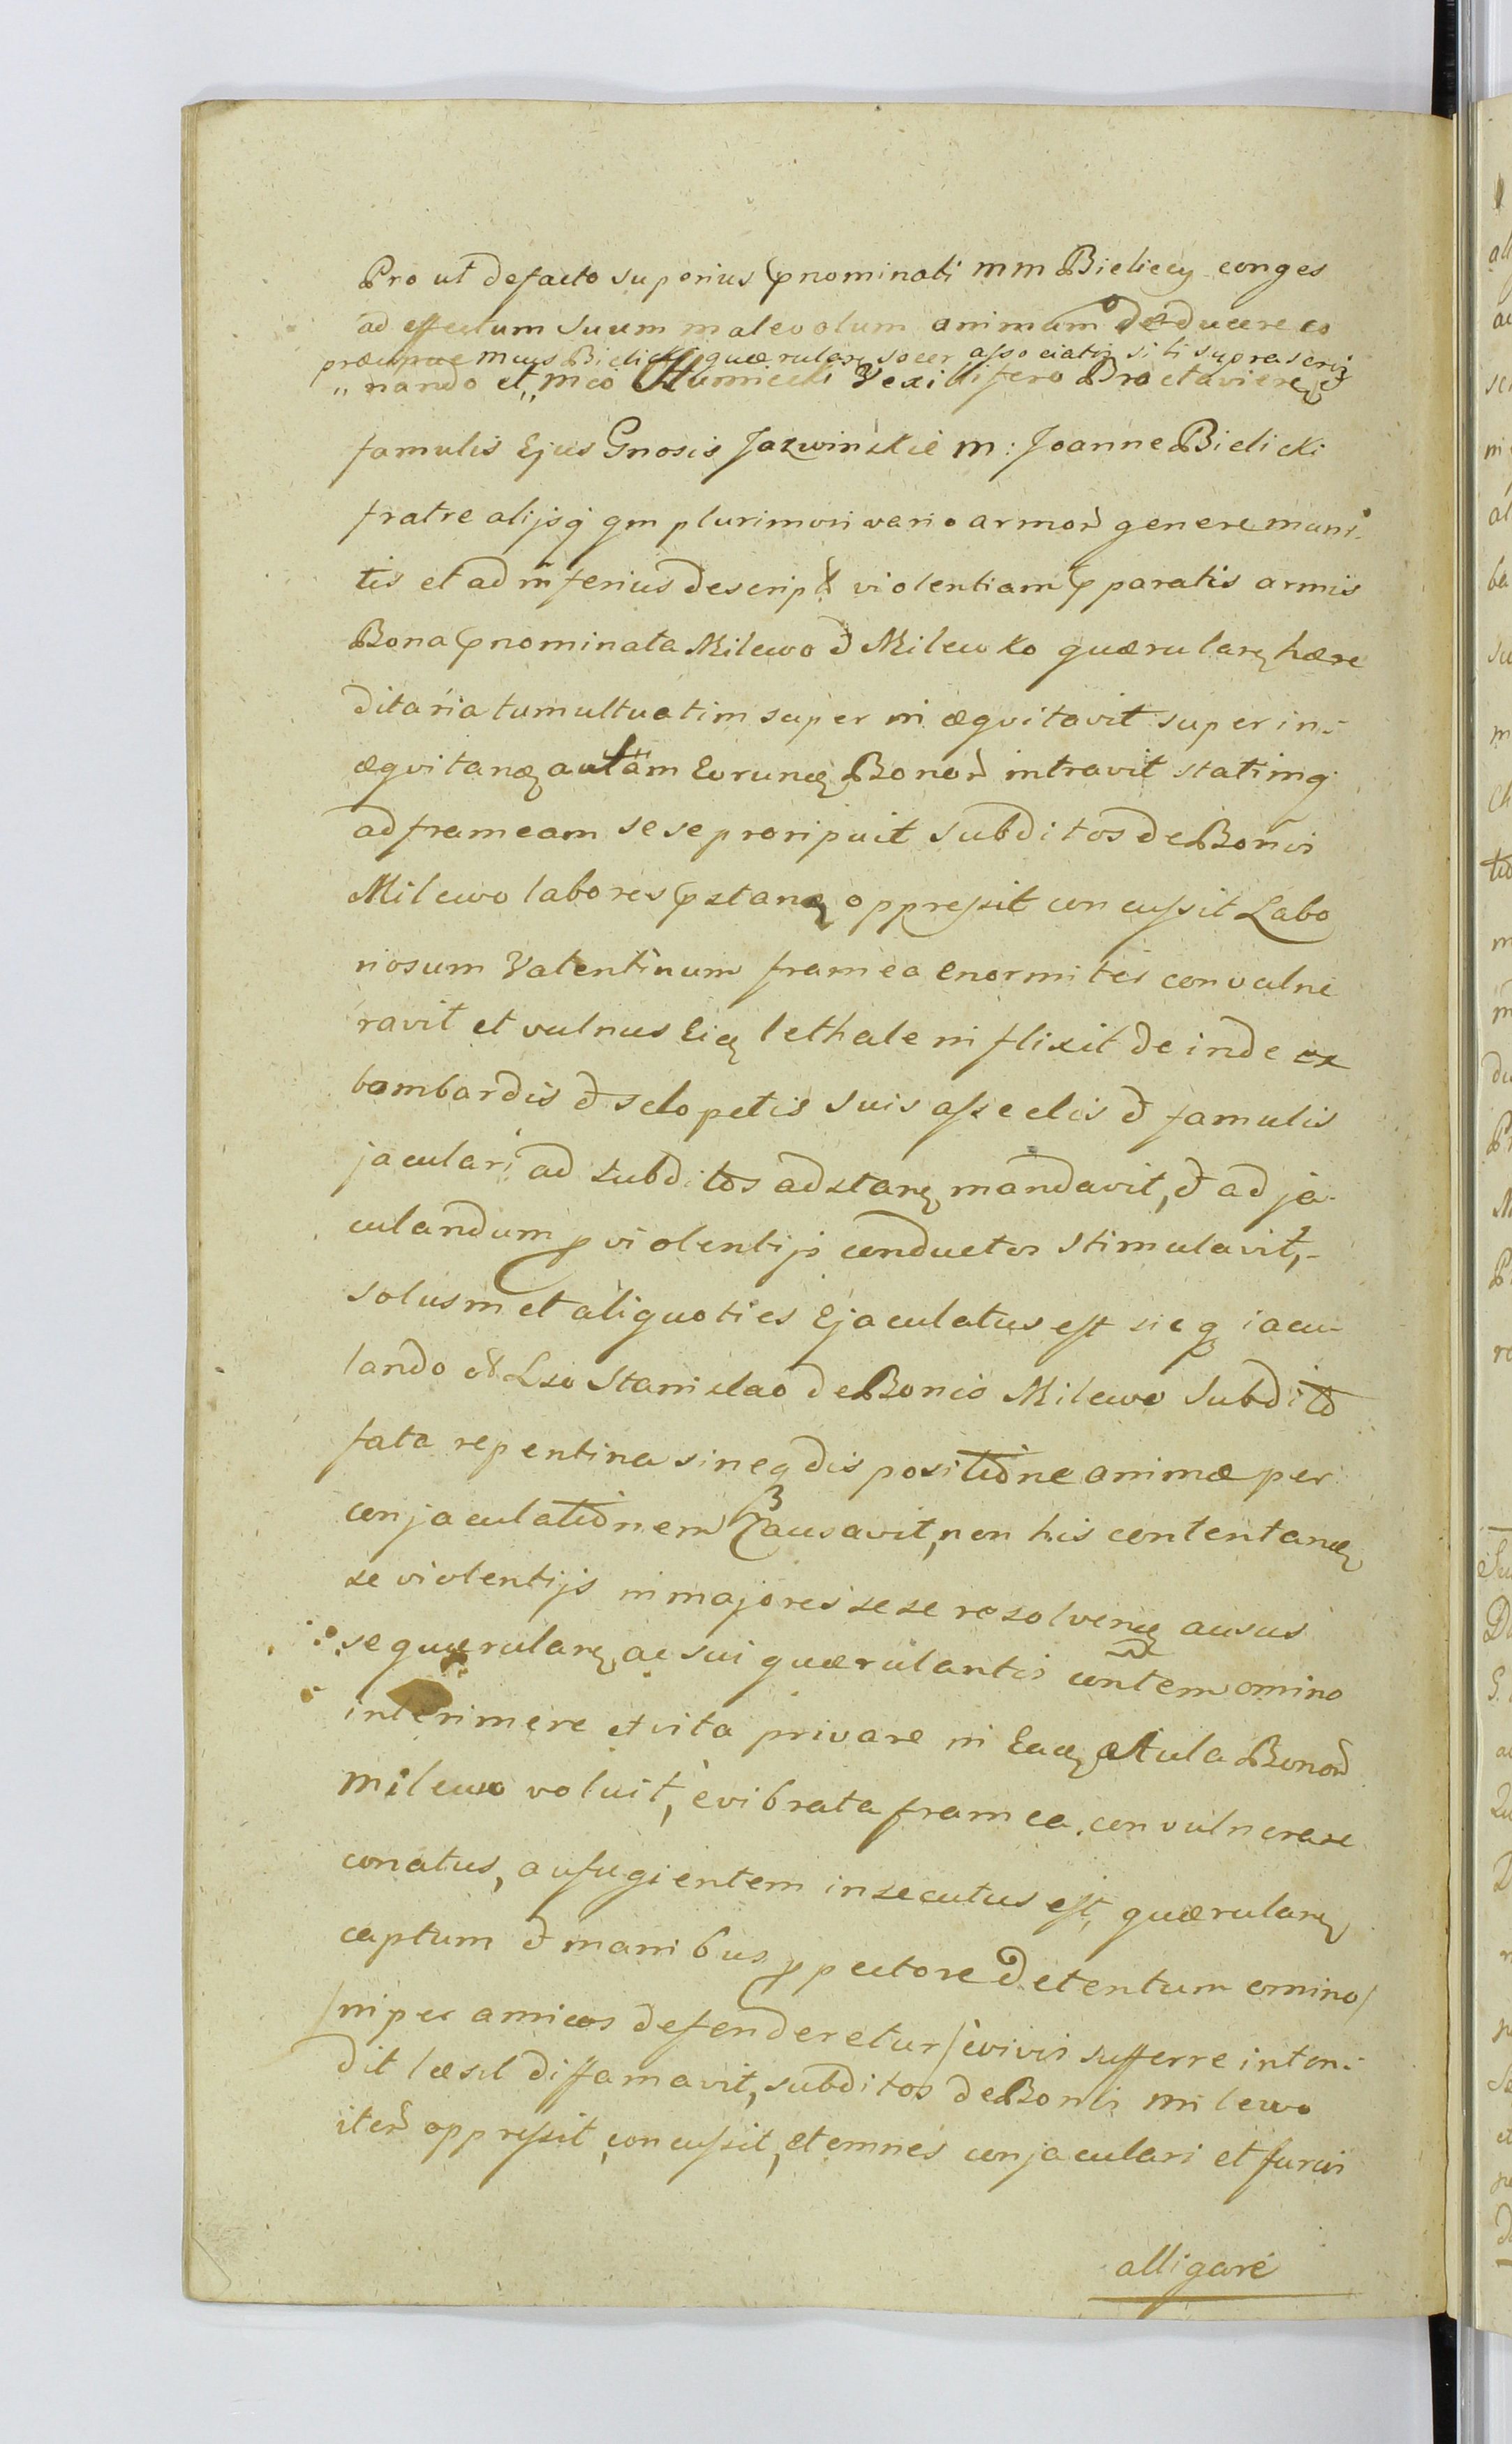 Pro ut defacto superius pnominati mm Bieliccy conges
ad effectum suum malevolum animum deducere co
præcipue mcus Bielicki quærulanꝫ socer associatis sibi suprascrip
„nando et„ mco Humiecki Vexillifero Braclaviensꝫ &
famulis Ejus Gnosis Jazwinskie m: Joanne Bielicki
fratre alijsq qm plurimori vario armor genere muni-
tis et ad inferius descript violentiam pparatis armis
Bona pnominata Milewo & Milewko quærulanꝫ hære
ditaria tumultuatim super in æquitavit super in-
æquitanꝫ aulam Eorunꝫ Bonor intravit statimq
ad frameam sese proripuit subditos de Bonis
Milewo labores pstanꝫ oppressit concussit Labo
riosum Valentinum framea enormiter convulne
ravit et vulnus Eiꝫ lethale inflixit deinde ex
bombardis & sclopetis suis asseclis & famulis
jaculari ad subditos adstanꝫ mandavit, & ad ja-
culandum p violentijs conductos stimulavit,-
solusmet aliquoties Ejaculatus est sicq iacu-
lando Lso Stanislao de Bonis Milewo subdito
fata repentina sineq dispositione animæ per
conjaculationem causavit, non his contentanꝫ
se violentijs in majores sese resolvenꝫ ausus
se quærulanꝫ ac sui quærulantis contem omino
interimere et vita privare in Eaꝫ Aula Bonor
Milewo voluit, evibrata framea convulnerare
conatus, aufugientem insecutus est, quærulanꝫ
captum & manibus p pectore detentum omino/
/ni per amicos defenderetur/ evivis sufferre inten-
dit læsit diffamavit, subditos de Bonis Milewo
iter oppressit, concussit, et omnes conjaculari et furcis
alligare